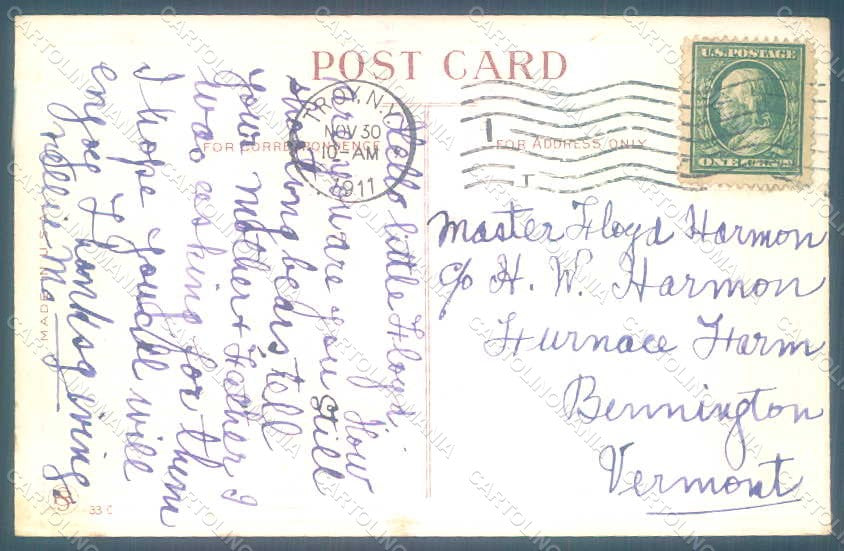 POST CARD
FOR CORRESPONDENCE
FOR ADDRESS ONLY
TROY, N.Y.
NOV 30
10 - AM
1911
1
U.S. POSTAGE
ONE
Hello little Floyd.
How
are you are you still
shooting bears tell
your Mother & Father I
was asking for them
I hope you all will
enjoy Thanksgiving
Nellie Mc
Master Floyd Harmon
c/o H. W. Harmon
Furnace Farm
Bennington
Vermont
MADE IN U.S.A.
33 C
CARTOLINOMANIA